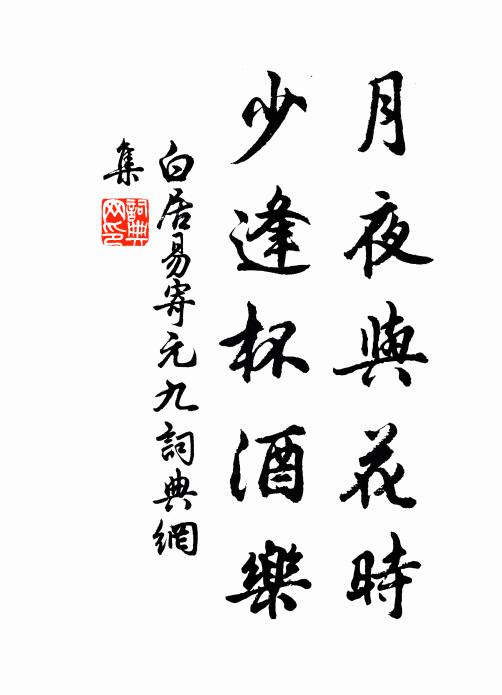 月夜與花時
少逢杯酒樂
白居易寄元九詞典網
集
詞典
网印